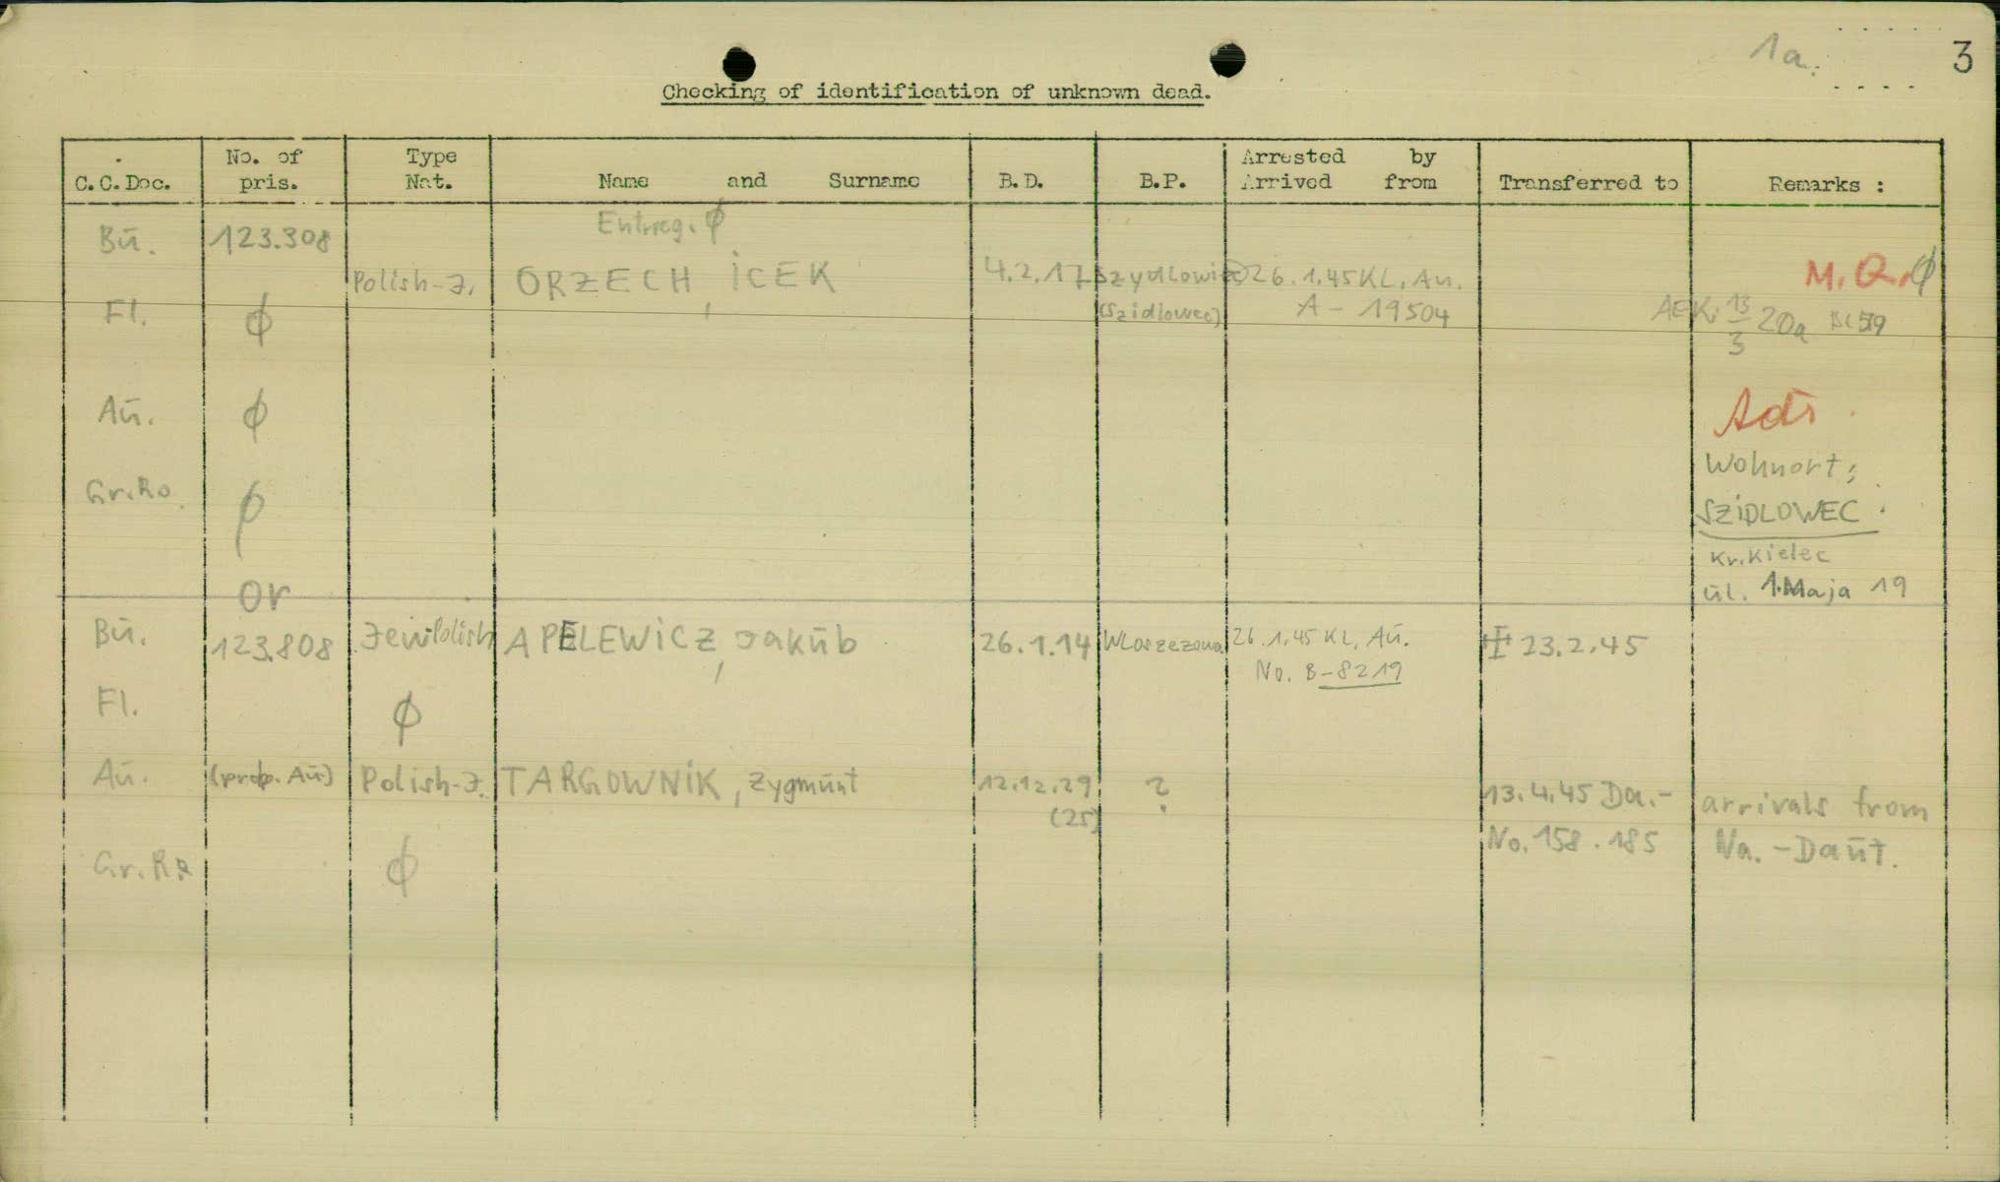 1a. 3
Checking of identification of unknown dead.
C.C.Doc. No. of pris. Type Nat. Name and Surname B.D. B.P. Arrested by Arrived from Transferred to Remarks :
Entrreg. ϕ
Bū. 123.308
Polish-J. ORZECH, ICEK 4.2.17 Szydlowiec 26.1.45 KL. Au. M.Q. ϕ
Fl. ϕ (Szidlowec) A - 19504 AEK. 13/3 20a
Aū. ϕ Adr.
Wohnort;
Gr.Ro. ϕ SZIDLOWEC.
Kr. Kielec
or ūl. 1.Maja 19
Bū. 123.808 Jew-Polish APELEWICZ, Jakūb 26.1.14 Wloszezowa 26.1.45 KL. Aū. 23.2.45
No. B-8219
Fl. ϕ
Aū. (prob. Aū) Polish-J. TARGOWNIK, Zygmūnt 12.12.29 ? 13.4.45 Da.- arrivals from
(25) No. 158.185 Na.-Daūt.
Gr.Ro ϕ